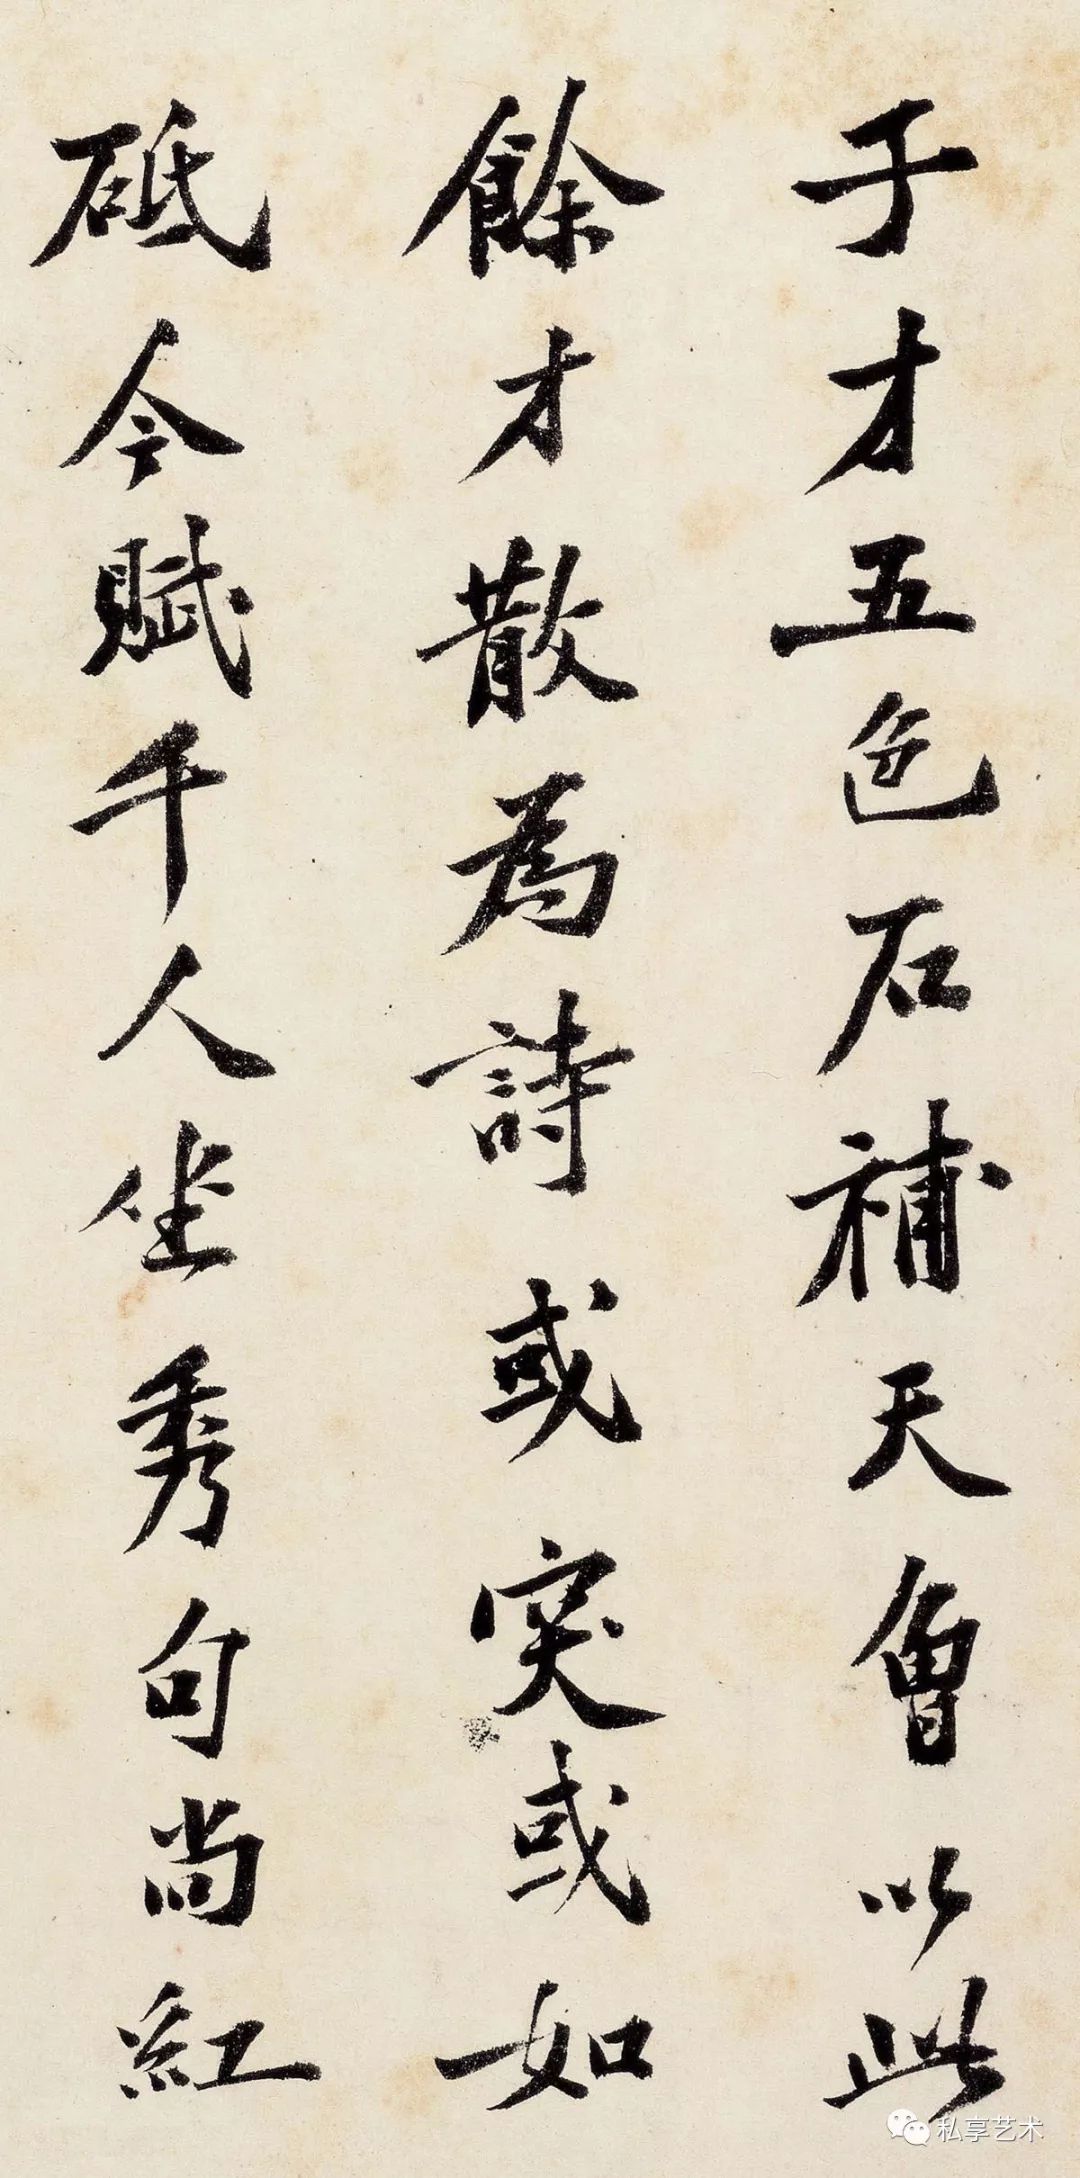 子才五色石補天會以此
餘才散為詩或突或如
砥今賦千人坐秀句尚紅
私享艺术